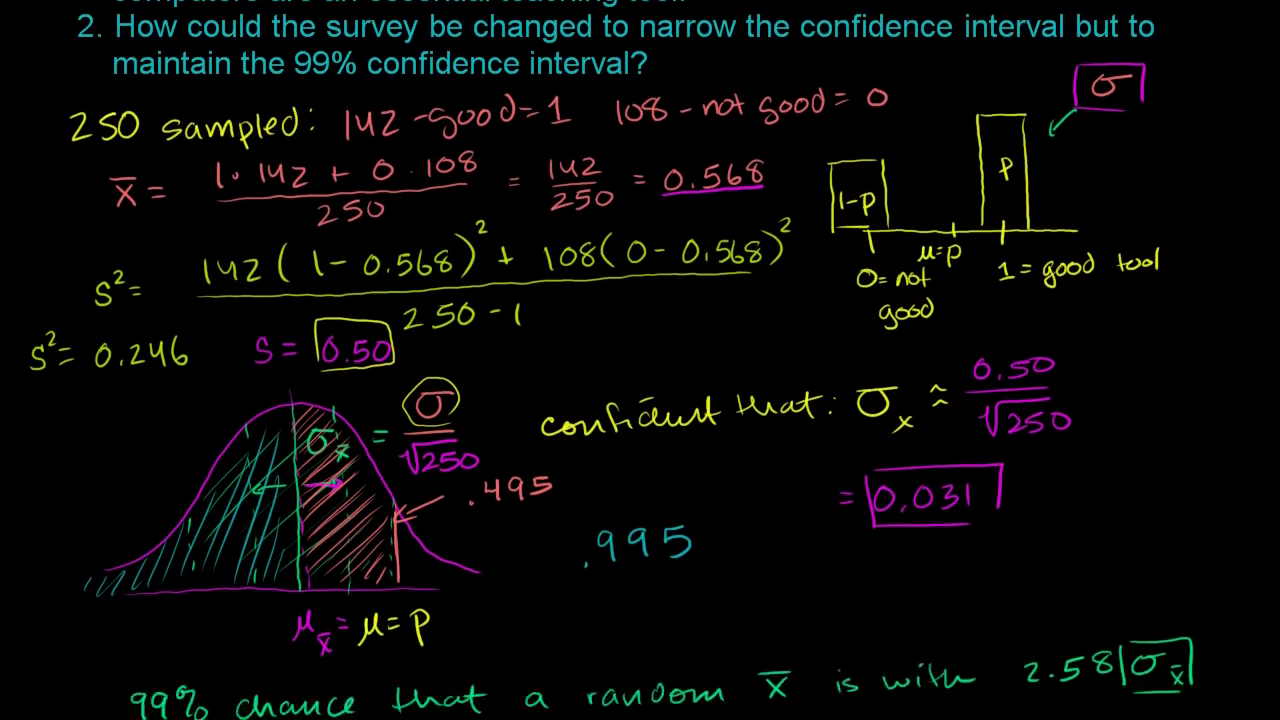 computers are an essential teaching tool.
2. How could the survey be changed to narrow the confidence interval but to
maintain the 99% confidence interval?
σ
250 sampled: 142 - good = 1 108 - not good = 0
x̄ = (1 · 142 + 0 · 108) / 250 = 142/250 = 0.568
1-p p
μ=p
0 = not good
1 = good tool
S² = (142(1 - 0.568)² + 108(0 - 0.568)²) / (250 - 1)
S² = 0.246 S = 0.50
σx̄ = σ/√250
confident that: σx ≈ 0.50/√250
= 0.031
.495
.995
μx̄ = μ = p
99% chance that a random x̄ is with 2.58 σx̄